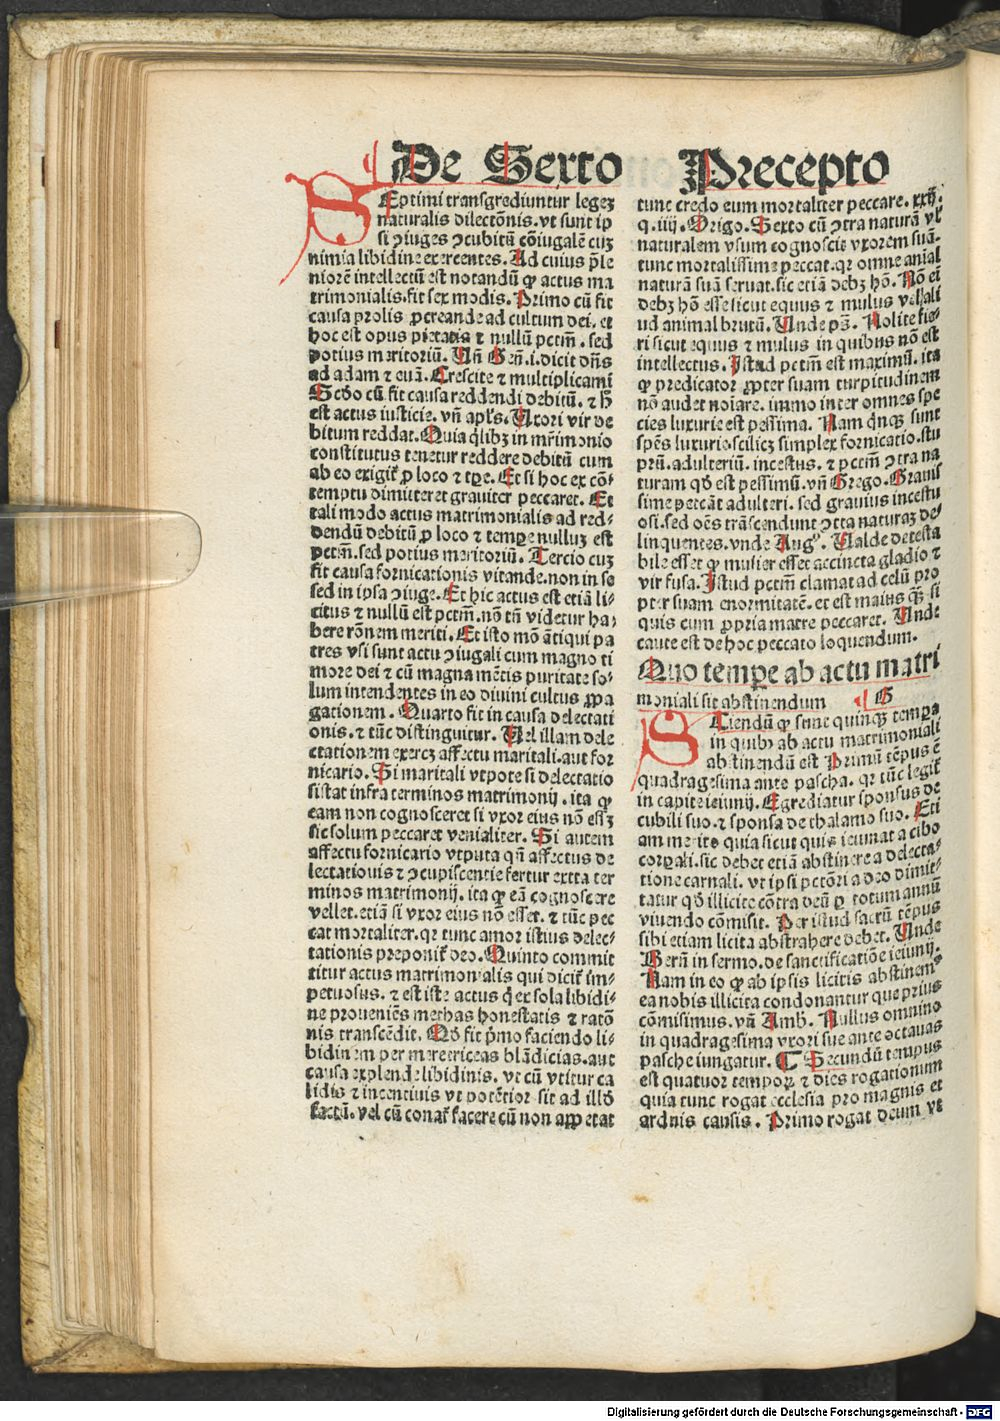 De Sexto Precepto
SEptimi transgrediuntur legeꝫ
naturalis dilectõnis. vt sunt ip
si ↄiuges ↄcubitũ cõiugalẽ cuꝫ
nimia libidine exercentes. Ad cuius ple
niorẽ intellectũ est notandũ ꝙ actus ma
trimonialis fit sex modis. Primo cũ fit
causa prolis ꝓcreande ad cultum dei. et
hoc est opus pietatis ⁊ nullũ pctm̃. sed
potius meritoriũ. Vñ Geñ. i. dicit dñs
ad adam ⁊ euã. Crescite ⁊ multiplicamĩ
Scďo cũ fit causa reddendi debitũ. ⁊ h̃
est actus iusticie. vñ apl's. Uxori vir de
bitum reddat. Quia q̃libꝫ in mr̃imonio
constitutus tenetur reddere debitũ cum
ab eo exigit̃ ꝓ loco ⁊ tꝑe. Et si hoc ex cõ⸗
temptu dimitteret grauiter peccaret. Et
tali modo actus matrimonialis ad red⸗
dendũ debitũ ꝓ loco ⁊ tempe nulluꝫ est
pctm̃. sed potius meritoriũ. Tercio cuꝫ
fit causa fornicationis vitande. non in se
sed in ipsa ↄiuge. Et hic actus est etiã li⸗
citus ⁊ nullũ est pctm̃. nõ tñ videtur ha⸗
bere rõnem meriti. Et isto mõ ãtiqui pa
tres vsi sunt actu ↄiugali cum magno ti
more dei ⁊ cũ magna mẽtis puritate so⸗
lum intendentes in eo diuini cultus ꝓpa
gationem. Quarto fit in causa delectati
onis. ⁊ tũc distinguitur. Uel illam dele
ctationem exercꝫ affectu maritali. aut for
nicario. Si maritali vtpote si delectatio
sistat infra terminos matrimonij. ita ꝙ
eam non cognosceret si vxor eius nõ essꝫ
sic solum peccaret venialiter. Si autem
affectu fornicario vtputa qñ affectus de
lectationis ⁊ ↄcupiscentie fertur extra ter
minos matrimonij. ita ꝙ eã cognoscere
vellet. etiã si vxor eius nõ esset. ⁊ tũc pec
cat mortaliter. qr tunc amor istius delec⸗
tationis preponit̃ deo. Quinto commit
titur actus matrimonialis qui dicit̃ im̃⸗
petuosus. ⁊ est iste actus q̃ ex sola libidi⸗
ne proueniẽs methas honestatis ⁊ ratõ
nis transcẽdit. Qď fit p̃mo faciendo li⸗
bidinem per meretriceas blãdicias. aut
causa explende libidinis. vt cũ vtitur ca
lidis ⁊ incentiuis vt potẽtior sit ad illď
factũ. vel cũ conat̃ facere cũ non appetat
tunc credo eum mortaliter peccare. xxij̃.
q. iiij. Origo. Sexto cũ ↄtra naturã vl'
naturalem vsum cognoscit vxorem suã.
tunc mortalissime peccat. qr omne anĩal
naturã suã seruat. sic etiã debꝫ hõ. Nõ eĩ
debꝫ hõ esse sicut equus ⁊ mulus vel ali
ud animal brutũ. Unde ps̃. Nolite fie⸗
ri sicut equus ⁊ mulus in quibus nõ est
intellectus. Istud pctm̃ est maximũ. ita
ꝙ predicator ꝓpter suam turpitudinem
nõ audet noĩare. immo inter omnes spe
cies luxurie est pessima. Nam q̃nqꝫ sunt
spẽs luxurie. scilicꝫ simplex fornicatio. stu
prũ. adulteriũ. incestus. ⁊ pctm̃ ↄtra na
turam qď est pessimũ. vñ Grego. Grauis
sime peccãt adulteri. sed grauius incestu
osi. sed oẽs trãscendunt ↄtra naturaꝫ de⸗
linquentes. vnde Augꝰ. Ualde detesta
bile esset ꝙ mulier esset accincta gladio ⁊
vir fusa. Istud pctm̃ clamat ad celũ pro
pter suam enormitatẽ. et est maius qͣꝫ si
quis cum ꝓpria matre peccaret. Unde
caute est de hoc peccato loquendum.
Quo tempe ab actu matri
moniali sit abstinendum G
SCiendũ ꝙ sunt quinqꝫ tempa
in quibꝫ ab actu matrimoniali
abstinendũ est Primũ tẽpus ẽ
quadragesima ante pascha. qr tũc legit̃
in capite ieiunij. Egrediatur sponsus de
cubili suo. ⁊ sponsa de thalamo suo. Eti
am merito quia sicut quis ieiunat a cibo
corꝑali. sic debet etiã abstinere a delecta⸗
tione carnali. vt ipsi pctõri a deo dimit⸗
tatur qď illicite cõtra deũ ꝑ totum annũ
viuendo cõmisit. Per istud sacrũ tẽpus
sibi etiam licita abstrahere debet. Unde
Berñ in sermo. de sanctificatiõe ieiunij.
Nam in eo ꝙ ab ipsis licitis abstinem⸗
ea nobis illicita condonantur que prius
cõmisimus. vñ Amb. Nullus omnino
in quadragesima vxori sue ante octauas
pasche iungatur. ¶ Secundũ tempus
est quatuor tempoꝝ ⁊ dies rogationum
quia tunc rogat ecclesia pro magnis et
arduis causis. Primo rogat deum vt
Digitalisierung gefördert durch die Deutsche Forschungsgemeinschaft - DFG